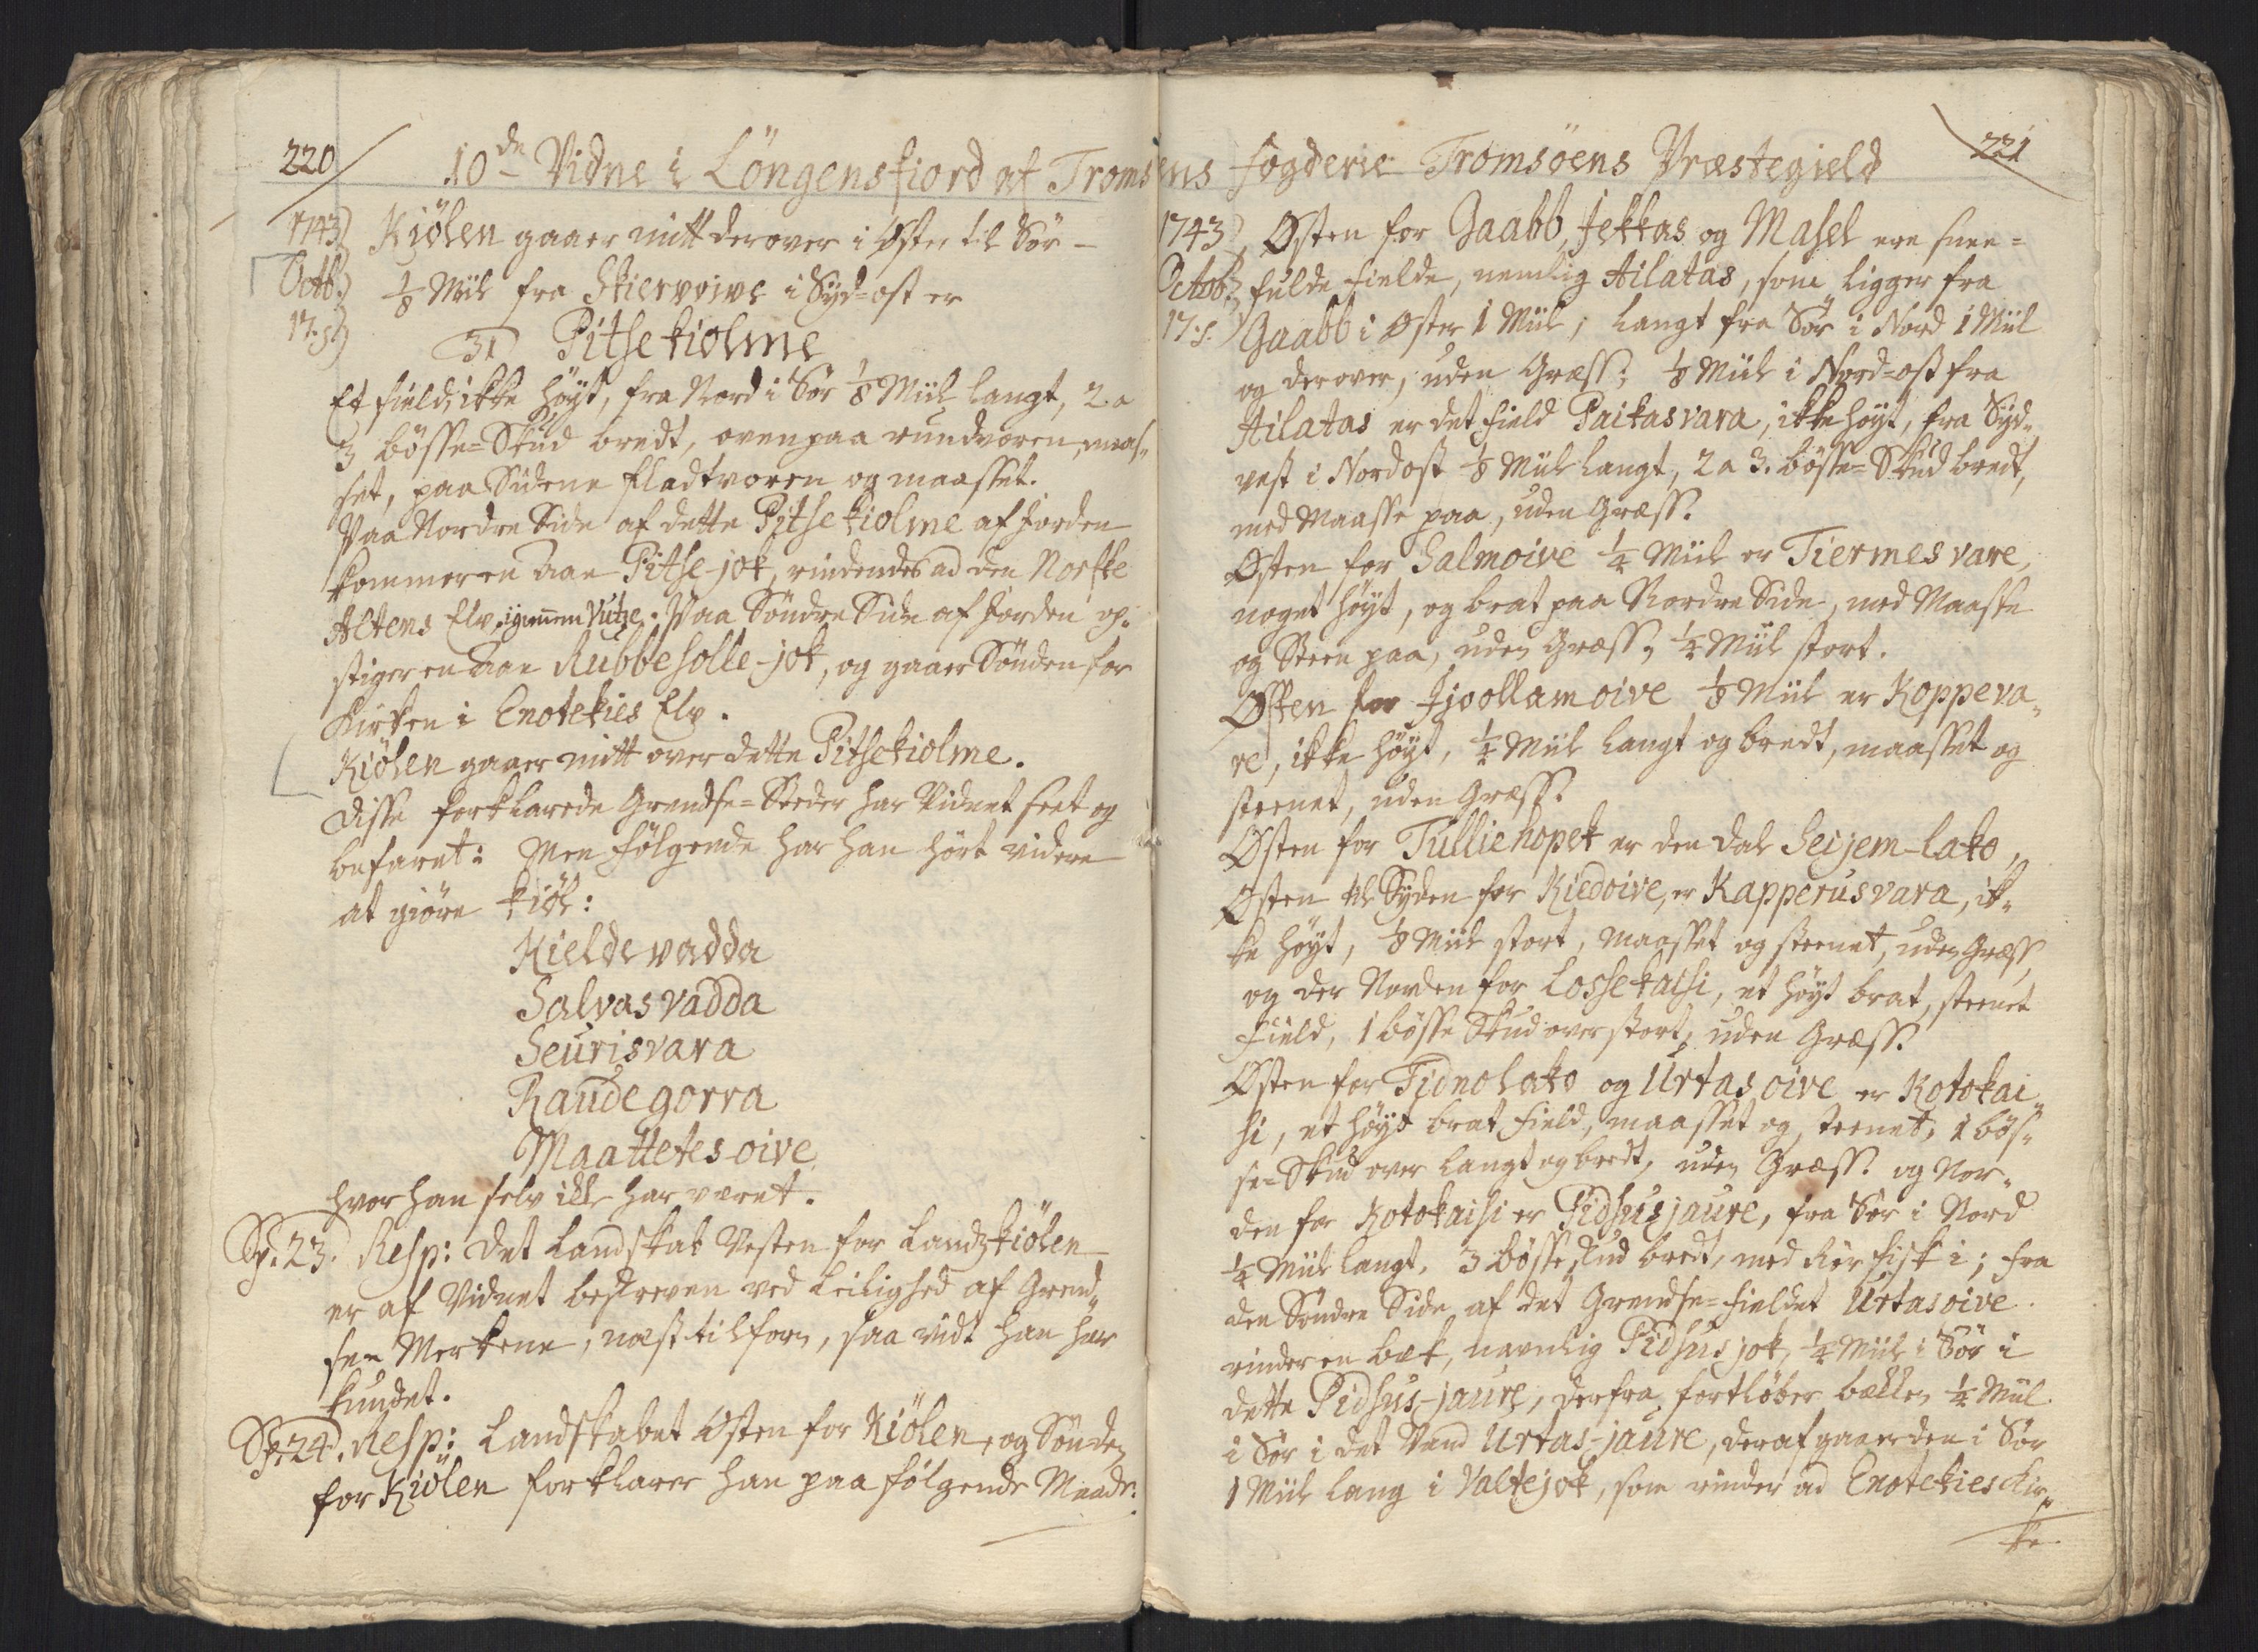 220
10de Vidne i Löngensfiord af Troms
1743)
Octb:)
17. s)
Kiölen gaaer mitt derover i Öster til Sör
1/8 Miil fra Skiervoive i Syd-ost er
31 Pitsekiolme
Et field, ikke höyt, fra Nord i Sör 1/8 Miil langt, 2 a
3 bösse-Skud bredt, ovenpaa rundvoren, maas„
set, paa Siderne fladtvoren og maasset.
Paa Nordre Side af dette Pitsekiolme af Jorden
kommer en Aae Pitse-jok, rindendes ad den Norske
Altens Elv, igiennem Vutze. Paa Söndre Side af Jorden op„
stiger en Aae Rubbesolle-jok, og gaaer Sönden for
Kirken i Enotekies Elv.
Kiölen gaaer mitt over dette Pitsekiolme.
Disse forklarede Grendse-Steder har Vidnet seet og
befaret: Men fölgende har han hört videre
at giöre Kiöl:
Kieldevadda
Salvasvadda
Seurisvara
Raudegorra
Maattetesoive
hvor han selv ikke har været.
Sp. 23. Resp: Det Landskab Vesten for Landzkiölen
er af Vidnet beskreven ved Leilighed af Grend„
se-Merkene, næst tilforn, saa vidt han har
kundet.
Sp. 24. Resp: Landskabet Osten for Kiölen, og Sönden
for Kiölen forklarer han paa fölgende Maade:
ens Fogderie Tromsöens Præstegield
221
1743)
Octob:)
17. s.
Østen for Gaabb, Jekkas og Masel ere snee-
fulde Fielde, nemlig Ailatas, som ligger fra
Gaabb i Öster 1 Miil; langt fra Sör i Nord 1 Miil
og derover, uden Græss; 1/8 Miil i Nord-ost fra
Ailatas er det field Paikasvara, ikke höyt, fra Syd„
vest i Nordost 1/8 Miil langt, 2 a 3. bösse-Skud bredt,
med Maasse paa, uden Græss.
Østen for Salmoive 1/4 Miil er Tiermesvare,
noget höyt, og brat paa Nordre Side, med Maasse
og Steen paa, uden Græss, 1/4 Miil stort.
Østen for Jjoollamoive 1/8 Miil er Koppeva„
re, ikke höyt, 1/4 Miil langt og bredt, maasset og
steenet, uden Græss.
Østen for Tulliehopek er den Dal Seijem-lako,
Østen til Syden for Kiedoive, er Kapperusvara, ik„
ke höyt, 1/8 Miil stort, maasset og steenet, uden Græss,
og der Norden for Lossekaisi, et höyt brat, steenet
Field, 1 bösse Skud over stort, uden Græss.
Østen for Tidnolako og Urtasoive er Kotokai„
si, et höyt brat Field, maasset og steenet, 1 bös„
se-Skud over langt og bredt, uden Græss. og Nor„
den for Kotokaisi er Pidsusjaure, fra Sör i Nord
1/4 Miil langt, 3 bösse skud bredt, med Rör fisk i; fra
den Söndre Side af det Grendse-Fieldet Urtasoive
rinder en bæk, navnlig Pidsusjok, 1/4 Miil i Sör i
dette Pidsus-jaure, derfra fortlöber bækken 1/4 Miil
i Sör i det Vand Urtas-jaure, deraf gaaer den i Sör
1 Miil lang i Valtejok, som rinder ad Enotekies Kir„
ke